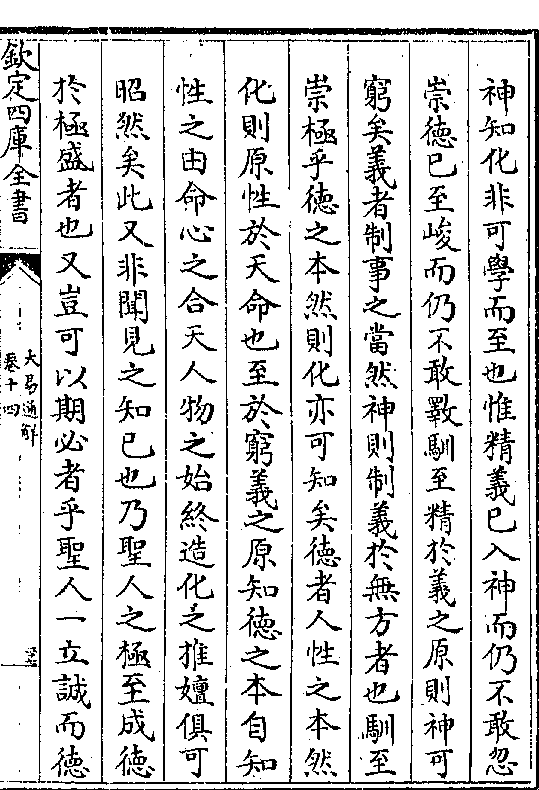 神知化非可學而至也惟精義已入神而仍不敢忽
崇德已至峻而仍不敢斁馴至精於義之原則神可
窮矣義者制事之當然神則制義於無方者也馴至
崇極乎德之本然則化亦可知矣德者人性之本然
化則原性於天命也至於窮義之原知德之本自知
性之由命心之合天人物之始終造化之推嬗俱可
昭然矣此又非聞見之知已也乃聖人之極至成德
於極盛者也又豈可以期必者乎聖人一立誠而德
欽定四庫全書
大易通解
卷十四